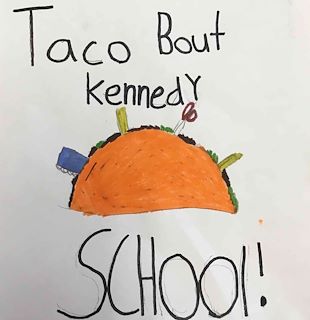 Taco Bout
KennedY
SCHOOl!